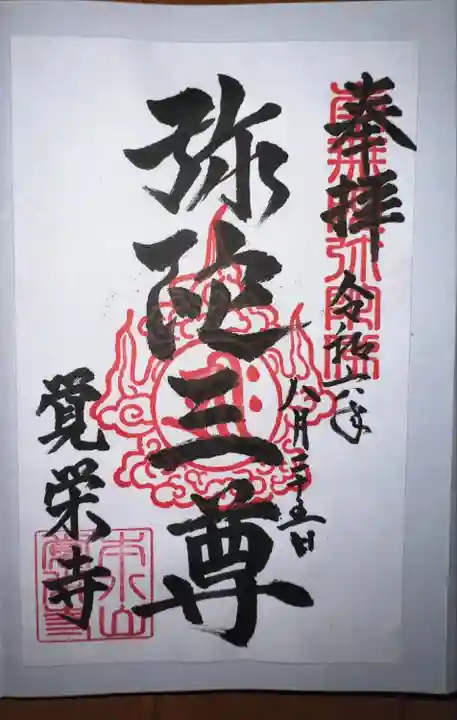 奉拝
令和六年
八月二十五日
弥陀三尊
覚栄寺